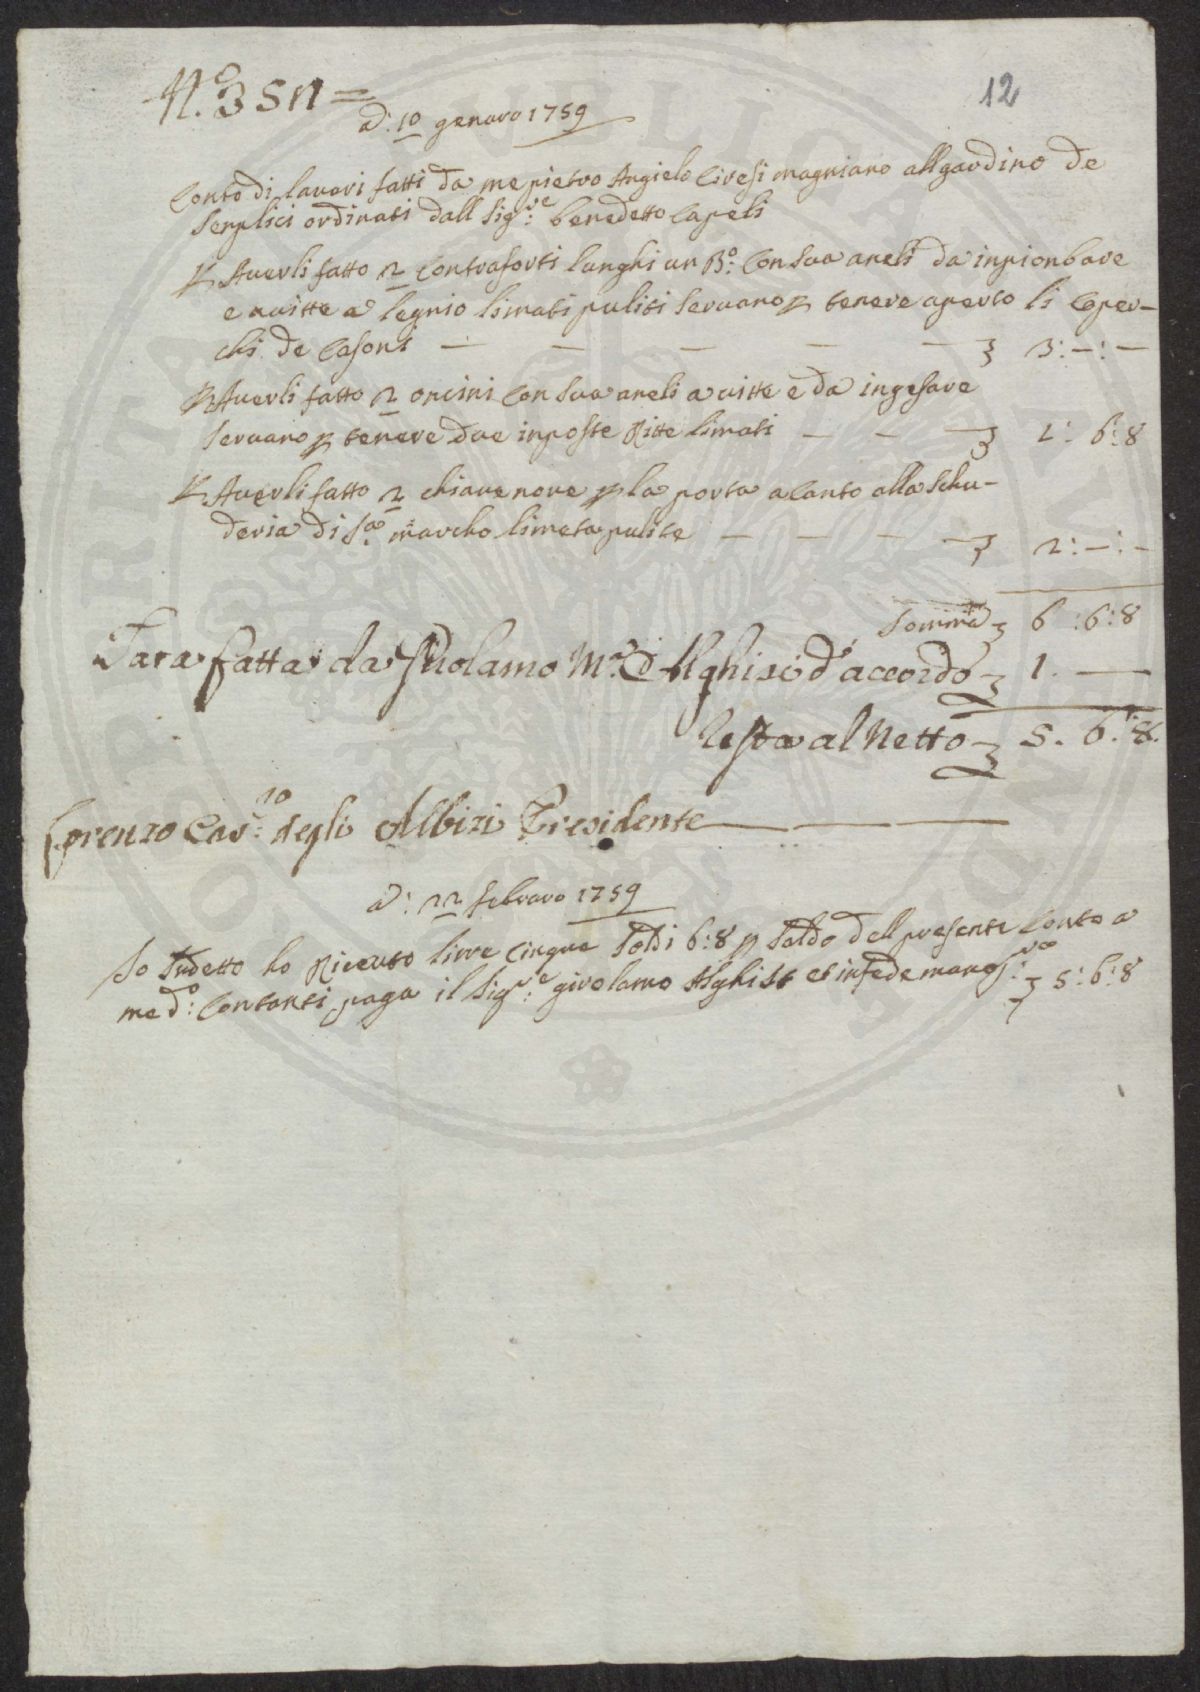 N.° 3 SN =
12
a: 10 genaro 1759
Conto di lavori fatti da me pietro Angielo Ciresi magniano all gardino de
Senplici ordinati dall Sig:re benedetto Capeli
P Averli fatto 2 contraforti lunghi un B:° con sua aneli da inpionbare
e a vitte a legnio limati puliti servano p tenere aperto li coper-
chi de Casoni — — — — — 3: — : —
P Averli fatto 2 oncini con sua aneli a vitte e da ingesare
servano p tenere due inposte Ritte limati — — — 1: 6: 8
P Averli fatto 2 chiave nove p la porta a canto alla Schu-
deria di S:a marcho limeta pulite — — — — 2: — : —
Somma 6 : 6 : 8
Tara fatta da Girolamo M:a Alghisi d'accordo 1. —
Resta al Netto 5. 6. 8.
Lorenzo Cav: degli Albizi Presidente
a: 22 febraro 1759
Io Sudetto ho Riceuto lirre cinque Soldi 6:8 p Saldo dell presente Conto a
me d:° Contanti paga il Sig:re girolamo Alghisi et in fede mano p:ro 5: 6: 8